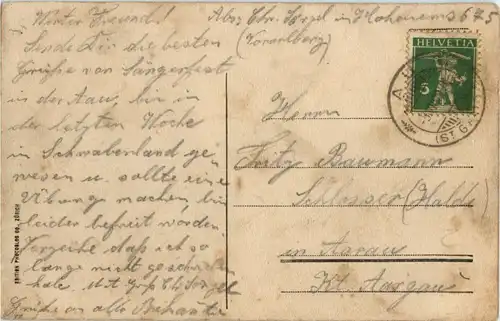 Werter Freund!
Sende Dir die besten
Grüße von Sängerfest
in der Aau, bin in
der letzten Woche
in Schwabenland ge-
wesen u. sollte eine
Übung machen, bin
leider befreit worden.
Verzeihe daß ich so
lange nicht geschrieben
habe. Mit Gruß Ch. Vogel
Grüße an alle Bekannte
Abs. Chr. Vogel in Hohenems 675
(Vorarlberg)
HELVETIA
5
(ST. G
Herrn
Fritz Baumann
Schlosser (Halde)
in Aarau
Kt. Aargau
EDITION PHOTOGLOB CO., ZÜRICH